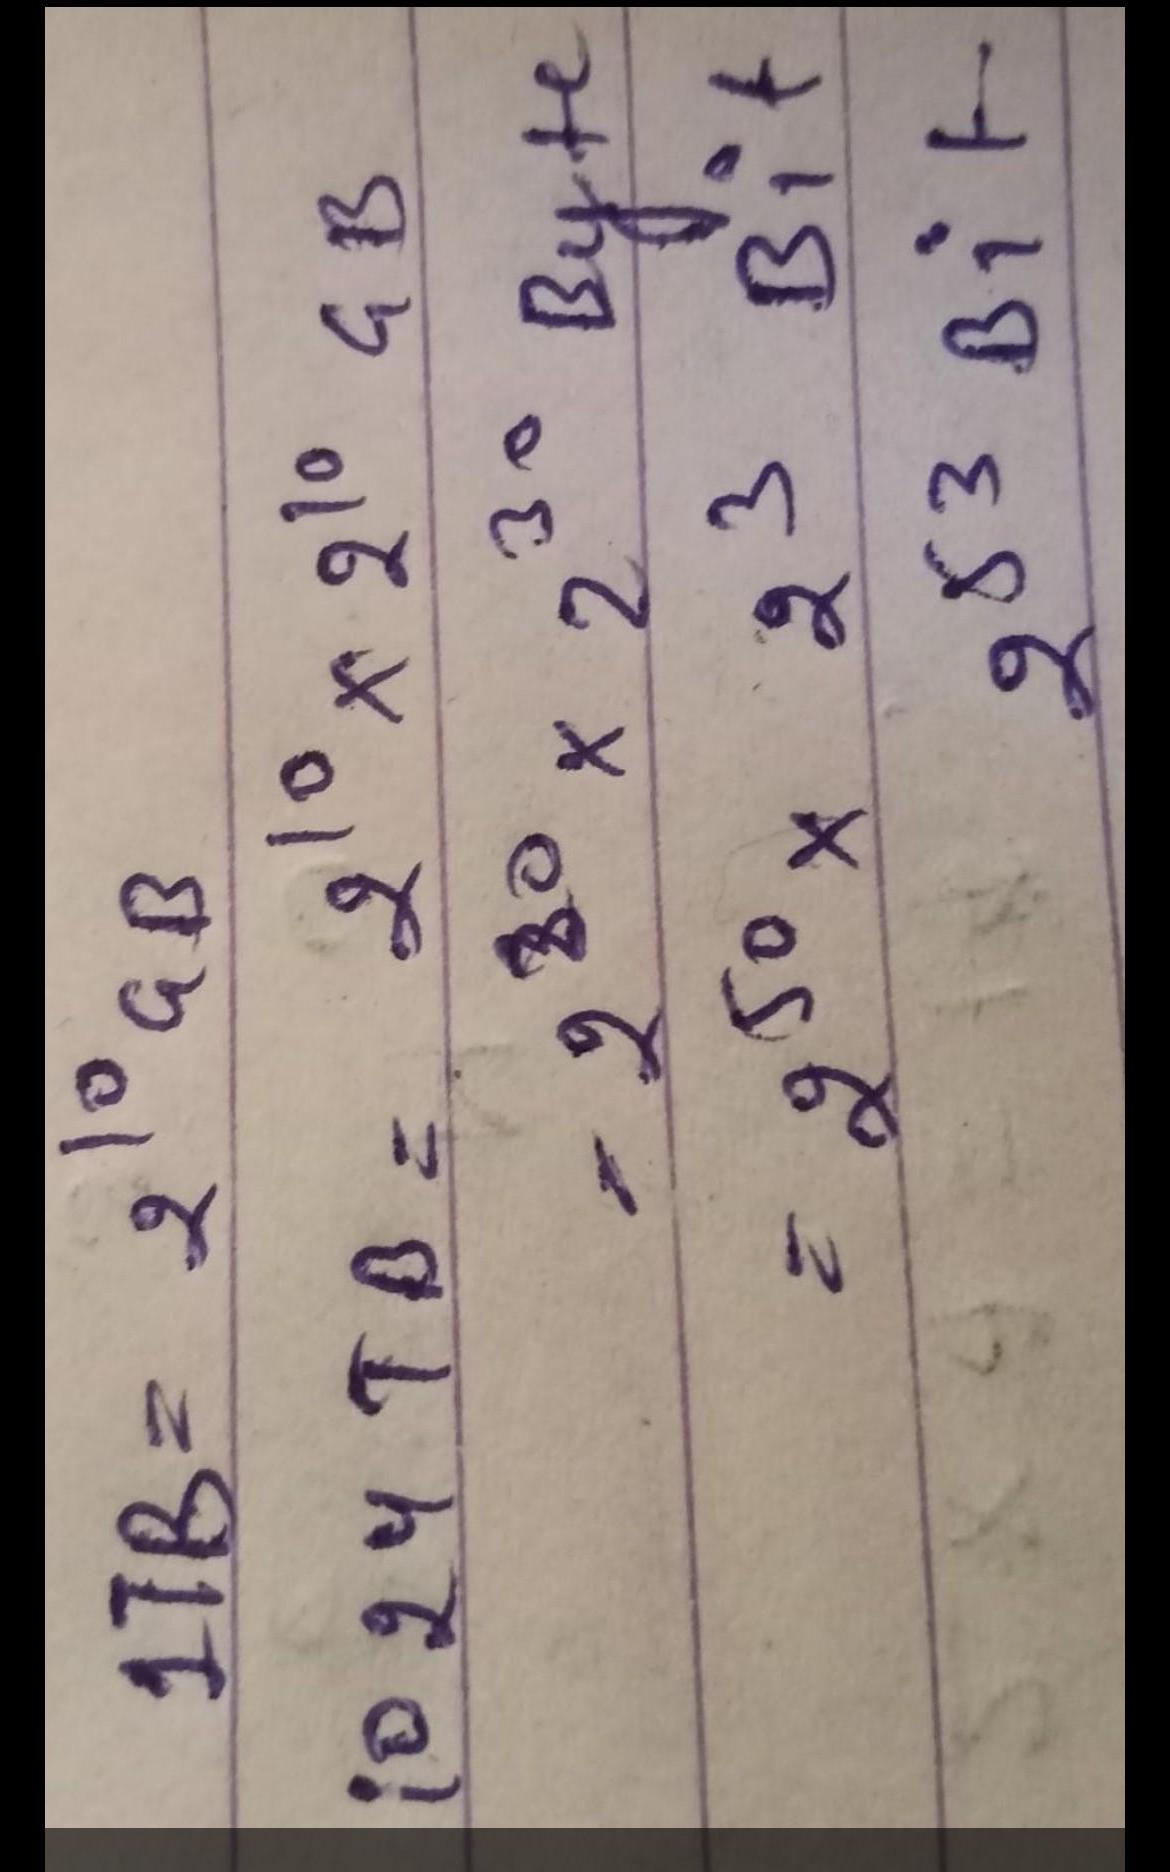 1TB = 2¹⁰ GB
1024 TB = 2¹⁰ x 2¹⁰ GB
= 2²⁰ x 2³⁰ Byte
= 2⁵⁰ x 2³ Bit
2⁵³ Bit